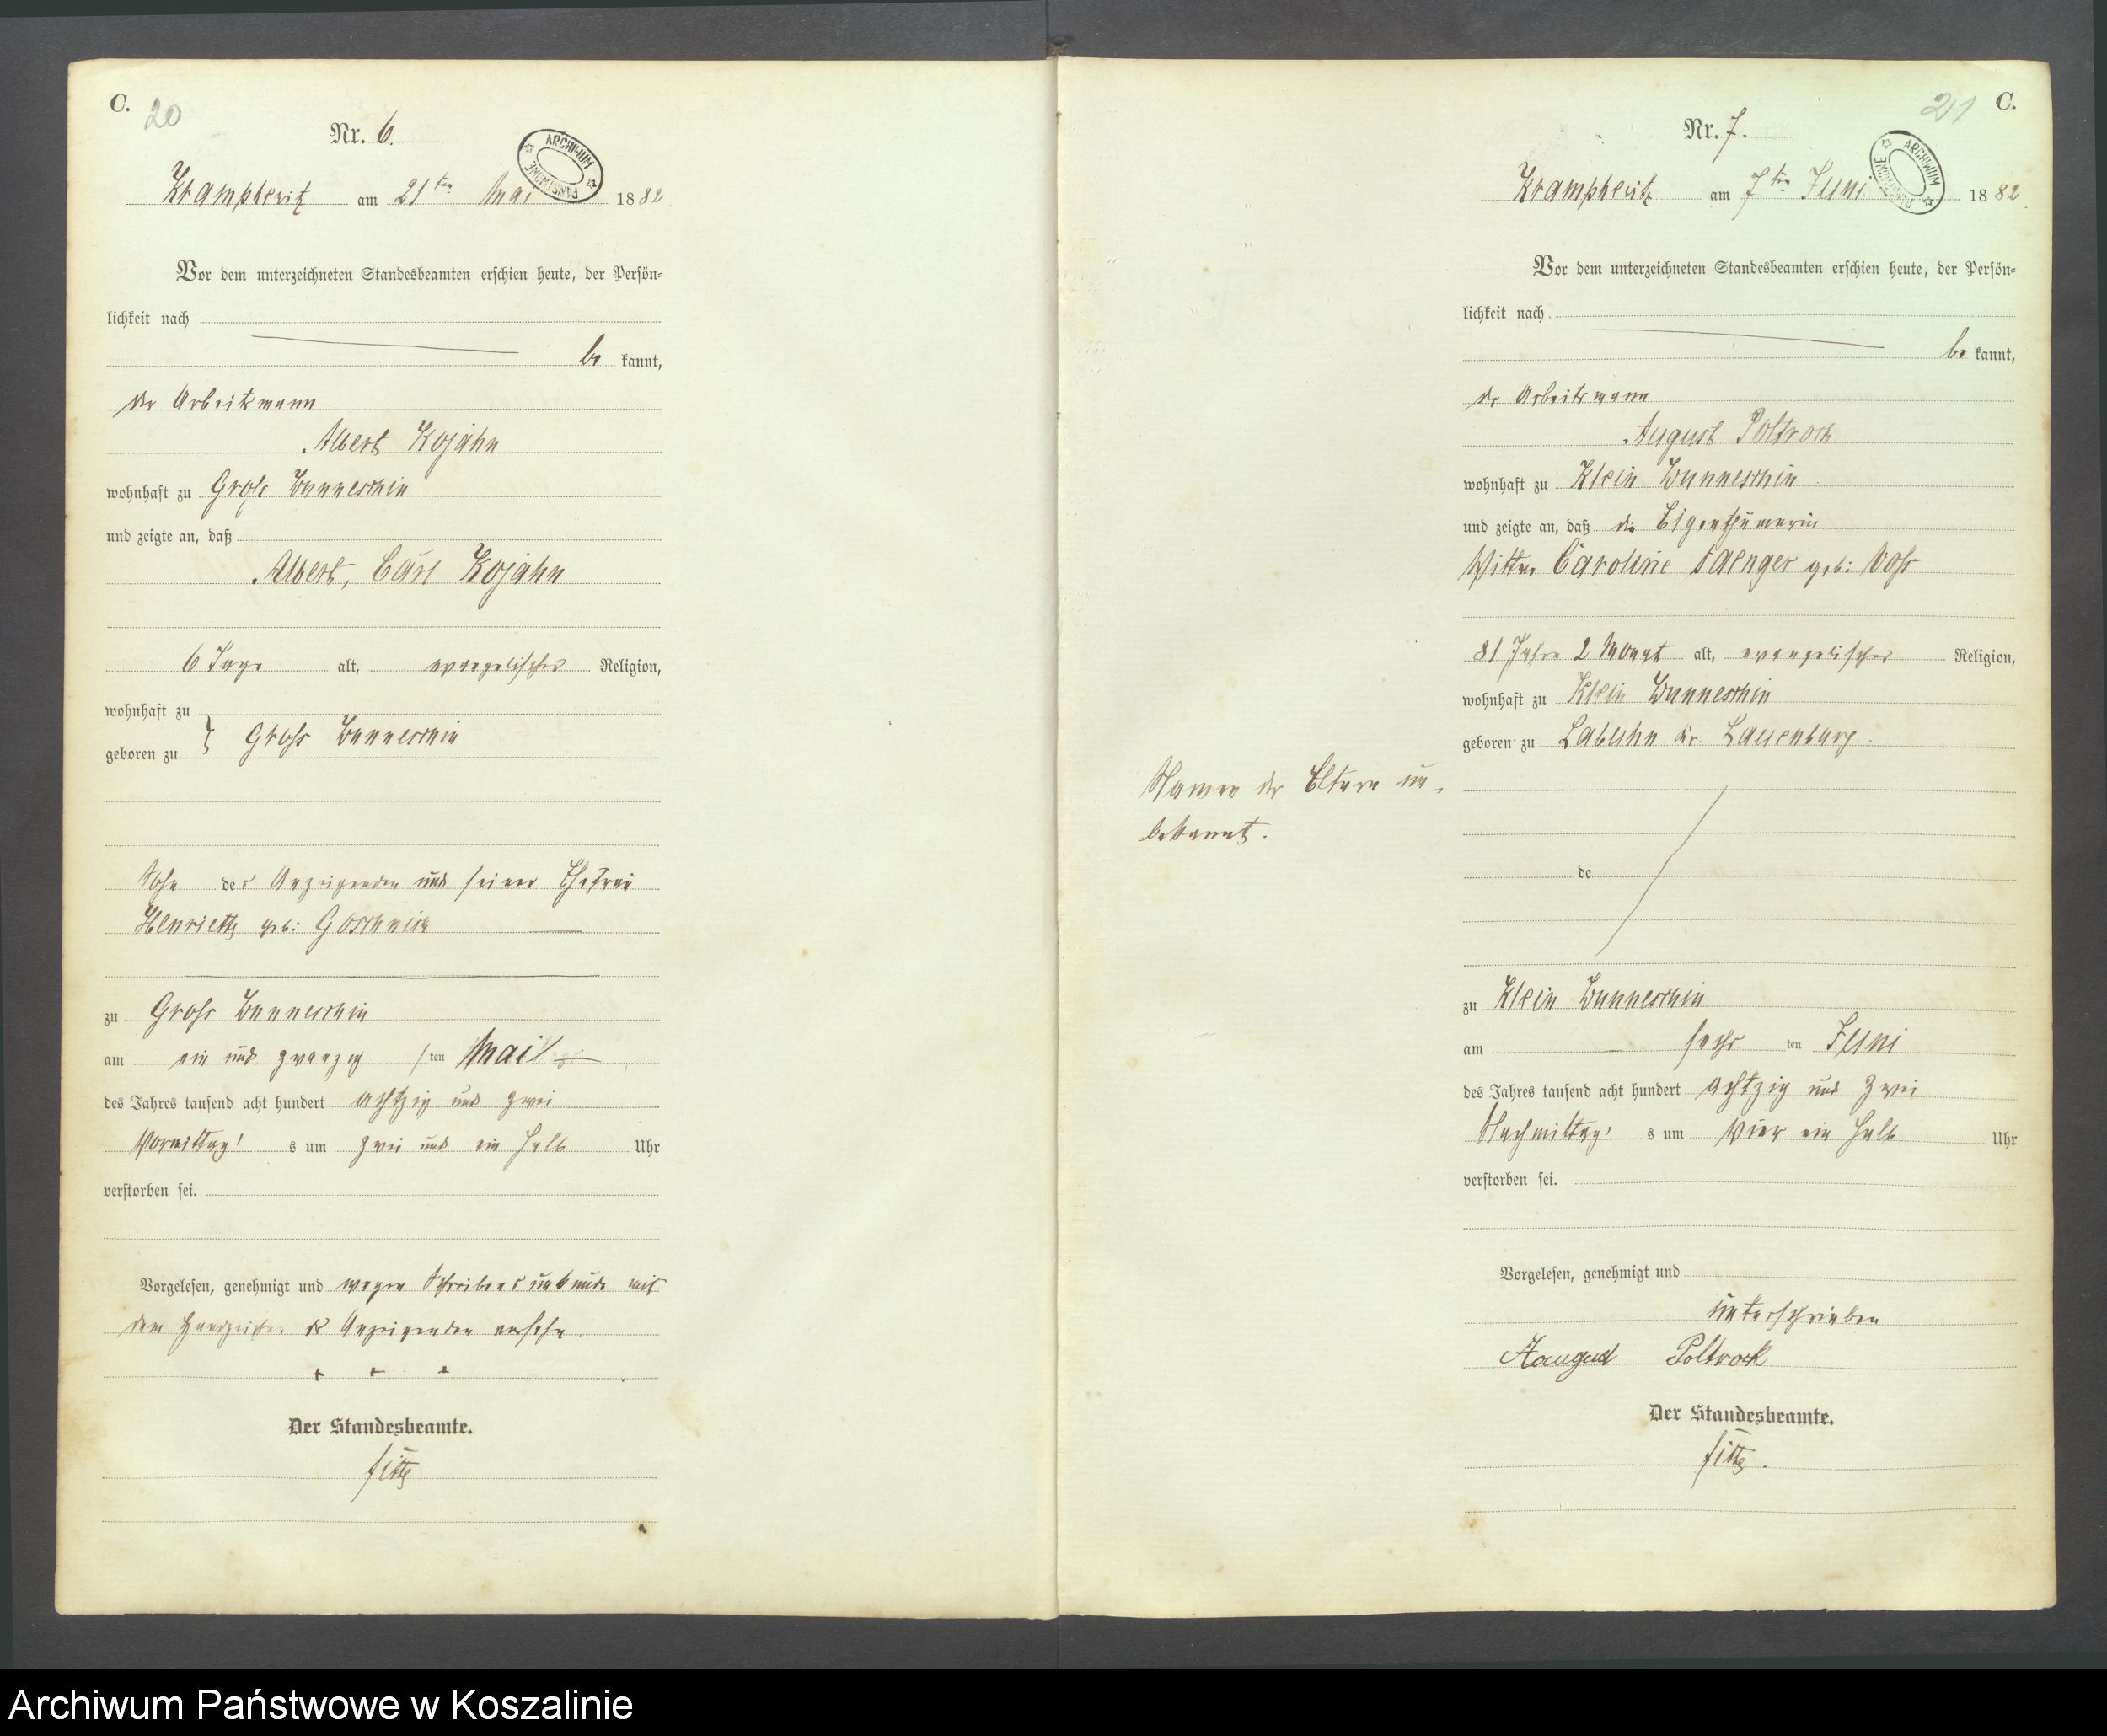 C.
20
Nr. 6.
ARCHIWUM PAŃSTWOWE
Krampkewitz am 21ten Mai 1882
Vor dem unterzeichneten Standesbeamten erschien heute, der Persön=
lichkeit nach
be kannt,
der Arbeitsmann
Albert Kojahn
wohnhaft zu Gross Wunneschin
und zeigte an, daß
Albert, Carl Kojahn
6 Tage alt, evangelischer Religion,
wohnhaft zu
geboren zu } Gross Wunneschin
Sohn des Anzeigenden und seiner Ehefrau
Henriette geb: Goschnick
zu Gross Wunneschin
am ein und zwanzig sten Mai
des Jahres tausend acht hundert achtzig und zwei
Vormittag s um zwei und ein halb Uhr
verstorben sei.
Vorgelesen, genehmigt und wegen Schreibensunkunde mit
dem Handzeichen des Anzeigenden versehn.
+ + +
Der Standesbeamte.
C.
21
Nr. 7.
ARCHIWUM PAŃSTWOWE
Krampkewitz am 7ten Juni 1882
Vor dem unterzeichneten Standesbeamten erschien heute, der Persön=
lichkeit nach
be kannt,
der Arbeitsmann
August Poltrock
wohnhaft zu Klein Wunneschin
und zeigte an, daß die Eigenthümerin
Wittwe Caroline Saenger geb: Voss
81 Jahre 2 Monat alt, evangelischer Religion,
wohnhaft zu Klein Wunneschin
geboren zu Labuhn Kr. Lauenburg.
Namen der Eltern un-
bekannt.
de
zu Klein Wunneschin
am sechs ten Juni
des Jahres tausend acht hundert achtzig und zwei
Nachmittag s um vier ein halb Uhr
verstorben sei.
Vorgelesen, genehmigt und
unterschrieben
Aaugust Poltrock
Der Standesbeamte.
Archiwum Państwowe w Koszalinie